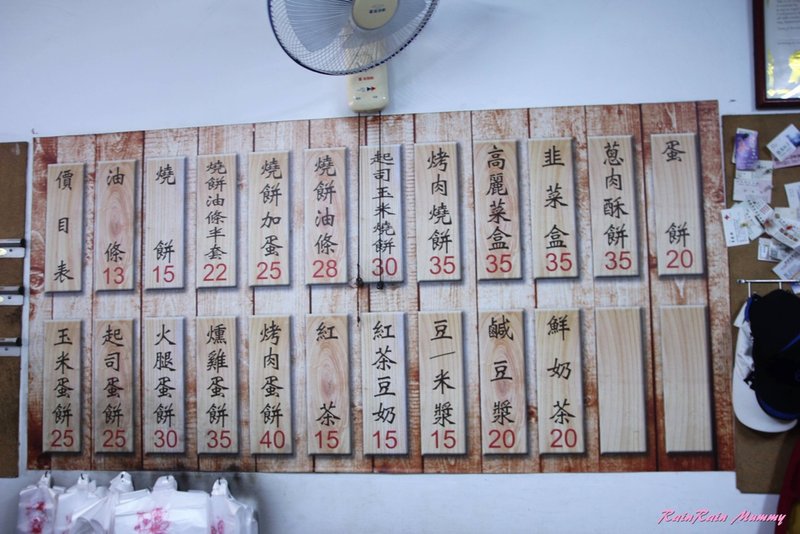 價目表
油條 13
燒餅 15
燒餅油條半套 22
燒餅加蛋 25
燒餅油條 28
起司玉米燒餅 30
烤肉燒餅 35
高麗菜盒 35
韭菜盒 35
蔥肉酥餅 35
蛋餅 20
玉米蛋餅 25
起司蛋餅 25
火腿蛋餅 30
燻雞蛋餅 35
烤肉蛋餅 40
紅茶 15
紅茶豆奶 15
豆/米漿 15
鹹豆漿 20
鮮奶茶 20
RainRain Mammy